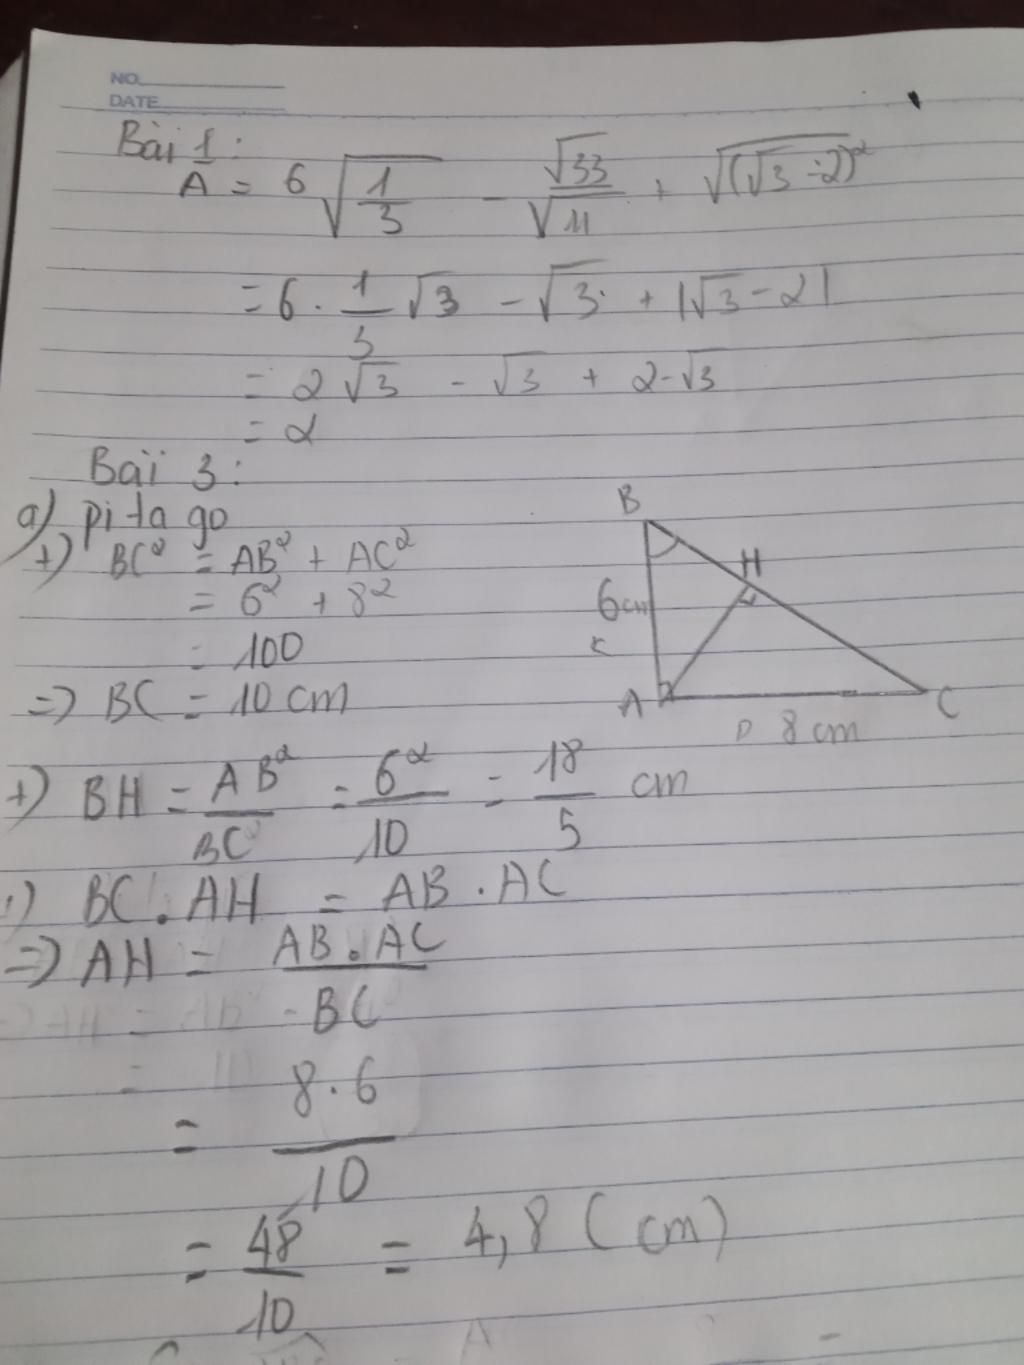 NO.
DATE
Bài 1:
A = 6√(1/3) - √33/√11 + √((√3-2)²)
= 6 . 1/3 √3 - √3 + |√3 - 2|
= 2√3 - √3 + 2-√3
= 2
Bài 3:
a) pi ta go
+) BC² = AB² + AC²
= 6² + 8²
= 100
=> BC = 10 cm
B
H
6cm
A
C
8 cm
+) BH = AB²/BC = 6²/10 = 18/5 cm
+) BC . AH = AB . AC
=> AH = AB . AC / BC
= 8 . 6 / 10
= 48/10 = 4,8 (cm)